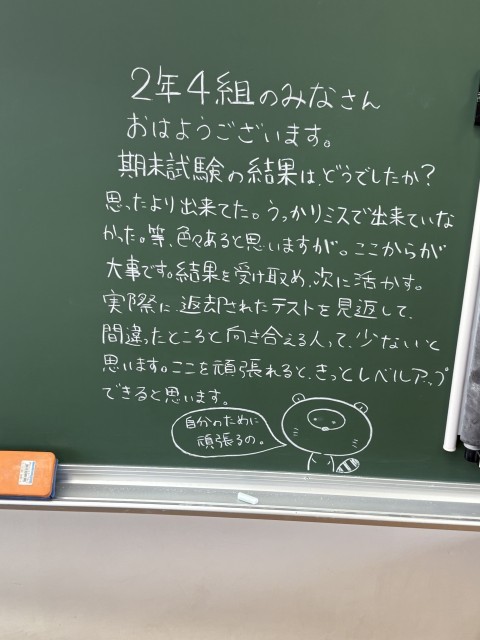 2年4組のみなさん
おはようございます。
期末試験の結果は、どうでしたか?
思ったより出来てた。うっかりミスで出来ていな
かった。等、色々あると思いますが。ここからが
大事です。結果を受け取め、次に活かす。
実際に、返却されたテストを見返して、
間違ったところと向き合える人って、少ないと
思います。ここを頑張れると、きっとレベルアップ
できると思います。
自分のために
頑張るの。